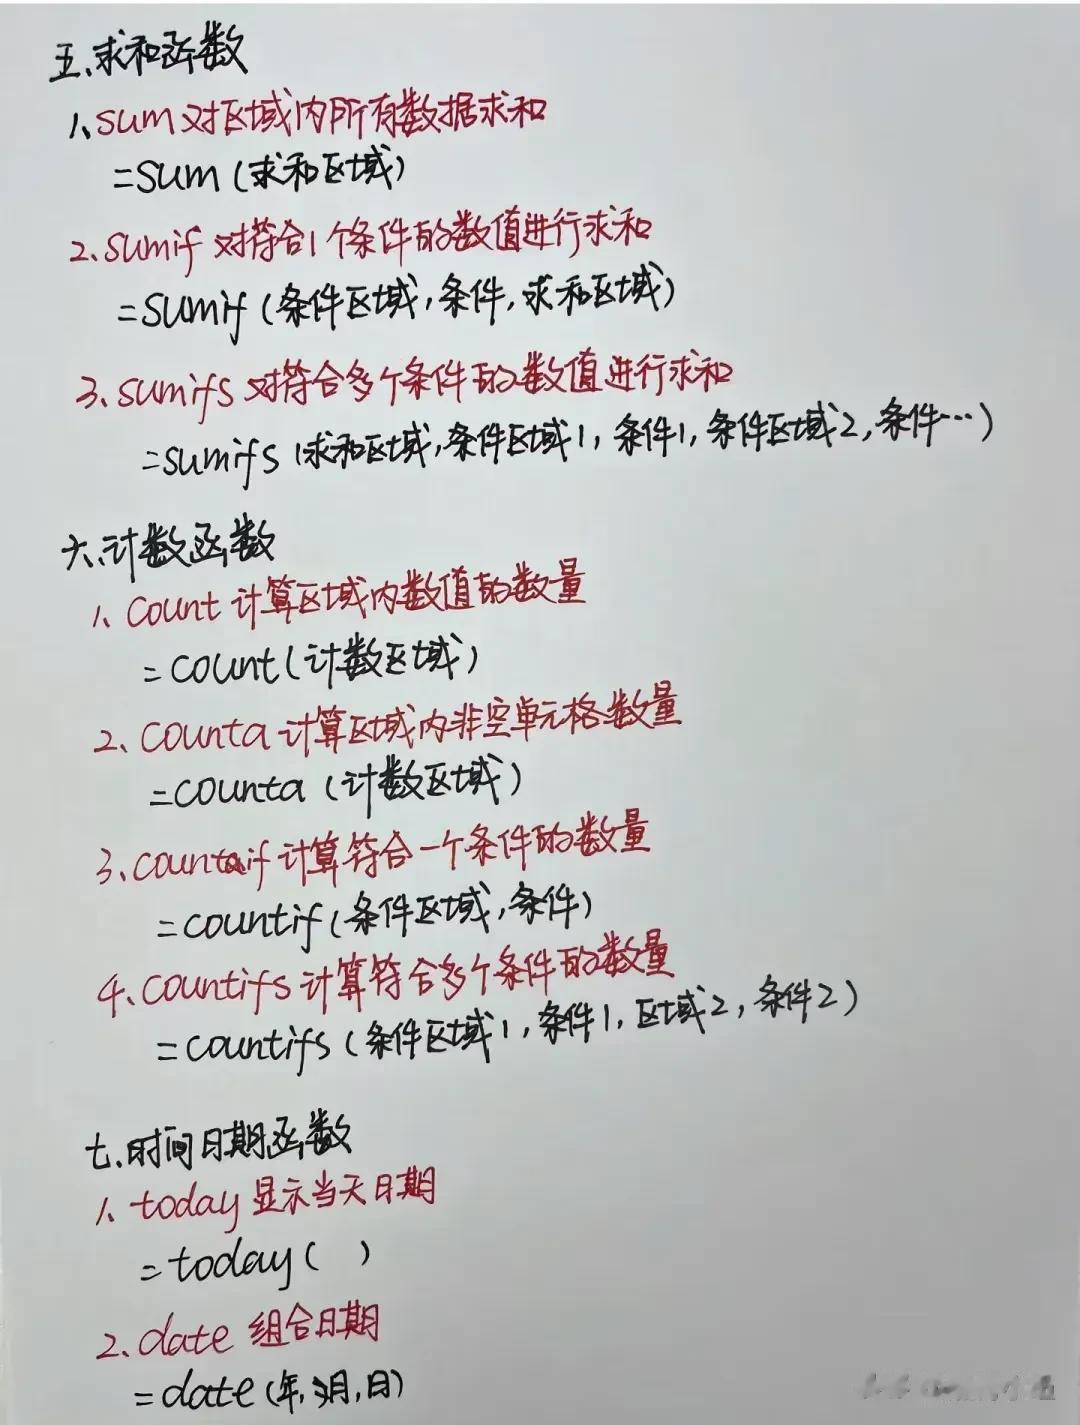 五、求和函数
1、sum 对区域内所有数据求和
=sum(求和区域)
2、sumif 对符合1个条件的数值进行求和
=sumif(条件区域,条件,求和区域)
3、sumifs 对符合多个条件的数值进行求和
=sumifs(求和区域,条件区域1,条件1,条件区域2,条件…)
六、计数函数
1、count 计算区域内数值的数量
=count(计数区域)
2、counta 计算区域内非空单元格数量
=counta(计数区域)
3、countif 计算符合一个条件的数量
=countif(条件区域,条件)
4、countifs 计算符合多个条件的数量
=countifs(条件区域1,条件1,区域2,条件2)
七、时间日期函数
1、today 显示当天日期
=today( )
2、date 组合日期
=date(年,月,日)